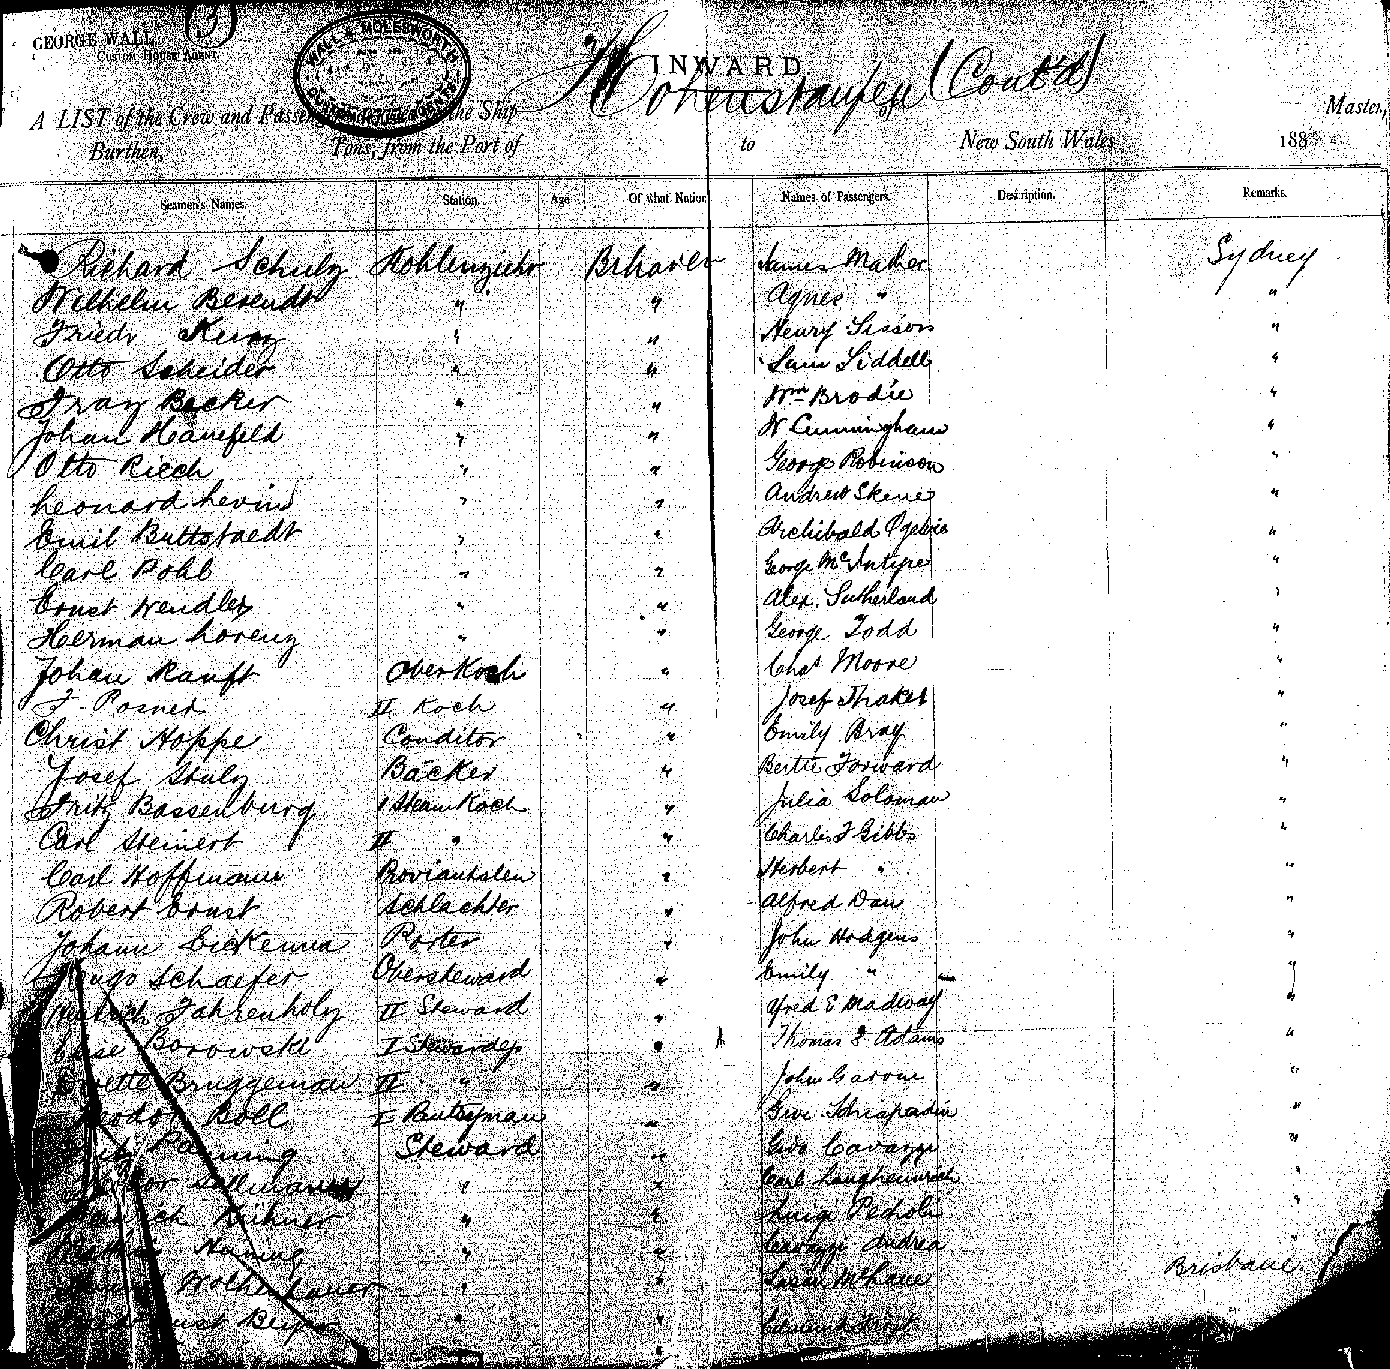 GEORGE WALL
3
Custom House Agent
WALL & MOLESWORTH
CUSTOM HOUSE AGENTS
INWARD
Hohenstaufen (Contd)
A LIST of the Crew and Passengers the Ship Master,
Burthen, Tons, from the Port of to New South Wales 188
Seamen's Names. Station. Age Of what Nation Names of Passengers. Description. Remarks.
Richard Schulz Kohlenzieher Brhaven James Mather Sydney
Wilhelm Berendt " " Agnes " "
Friedr Kunz " " Henry Sisson "
Otto Scheider " " Sam Siddell "
Franz Becker " " Wm Brodie "
Johan Hanefeld " " W Cunningham "
Otto Riech " " George Robinson "
Leonard Levin " " Andrew Skene "
Emil Buttstaedt " " Archibald Ogelvie "
Carl Pohl " " George McIntyre "
Ernst Wendler " " Alex. Sutherland "
Herman Lorenz " " George Todd "
Johan Ranft Oberkoch " Chas Moore "
F. Posner II Koch " Josef "
Christ Hoppe Conditor " Emily Bray "
Josef Stulz Bäcker " Bertie Forward "
Fritz Bassenburg 1 Steam Koch " Julia Soloman "
Carl Steinert II " " Charles F Gibbs "
Carl Hoffmann " Herbert " "
Robert Ernst Schlachter " Alfred Dan "
Johann Porter " John Hodgens "
Hugo Schaefer Obersteward " Emily " "
Fahrenholz II Steward " Alfred E Madway "
Else Borowski I Stewardess " Thomas F Adams "
Bruggeman II " " John "
Boll I " "
Steward " Cavazzi "
" " Carl "
" " Luigi "
" " Cavazzi Andrea "
" " Brisbane
" "